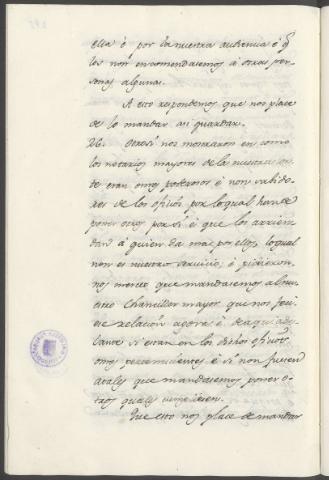 ella ó por la nuestra audiencia é q̃
los non encomendasemos á otras per-
sonas algunas.
A esto respondemos que nos place
de lo mandar asi guardar.
26. Otrosi nos mostraron en como
los notarios mayores de la nuestra cor-
te eran omes poderosos é non sabido-
res de los oficios por lo qual han de
poner otros por si é que los arrien-
dan á quien da mas por ellos, lo qual
non es nuestro servicio, é pidieron-
nos merced que mandasemos al nu-
estro Chanciller mayor que nos fici-
ese relacion agora é de aqui ade-
lante si estan en los dichos oficios
omes pertenecientes é si non fuesen
atales que mandasemos poner o-
tros quales cumpliesen.
Que esto nos place de mandar